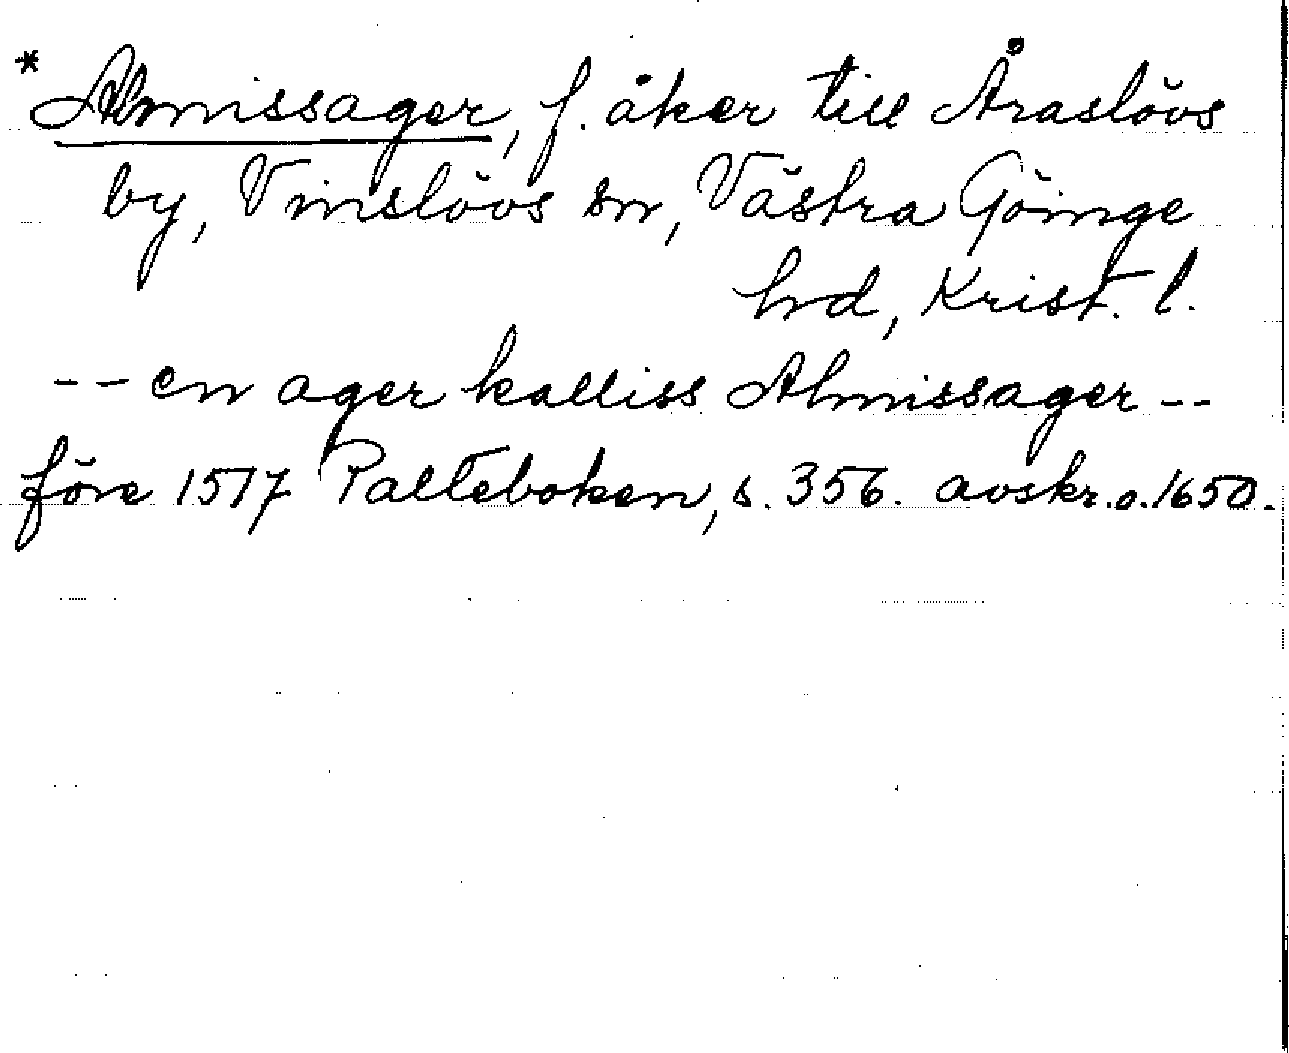 * Almissager, f. åker till Åraslövs
by, Vinslövs sn, Västra Göinge
hd, Krist. l.
-- en ager kalliss Almissager --
före 1517 Palteboken, s. 356. avskr. o. 1650.